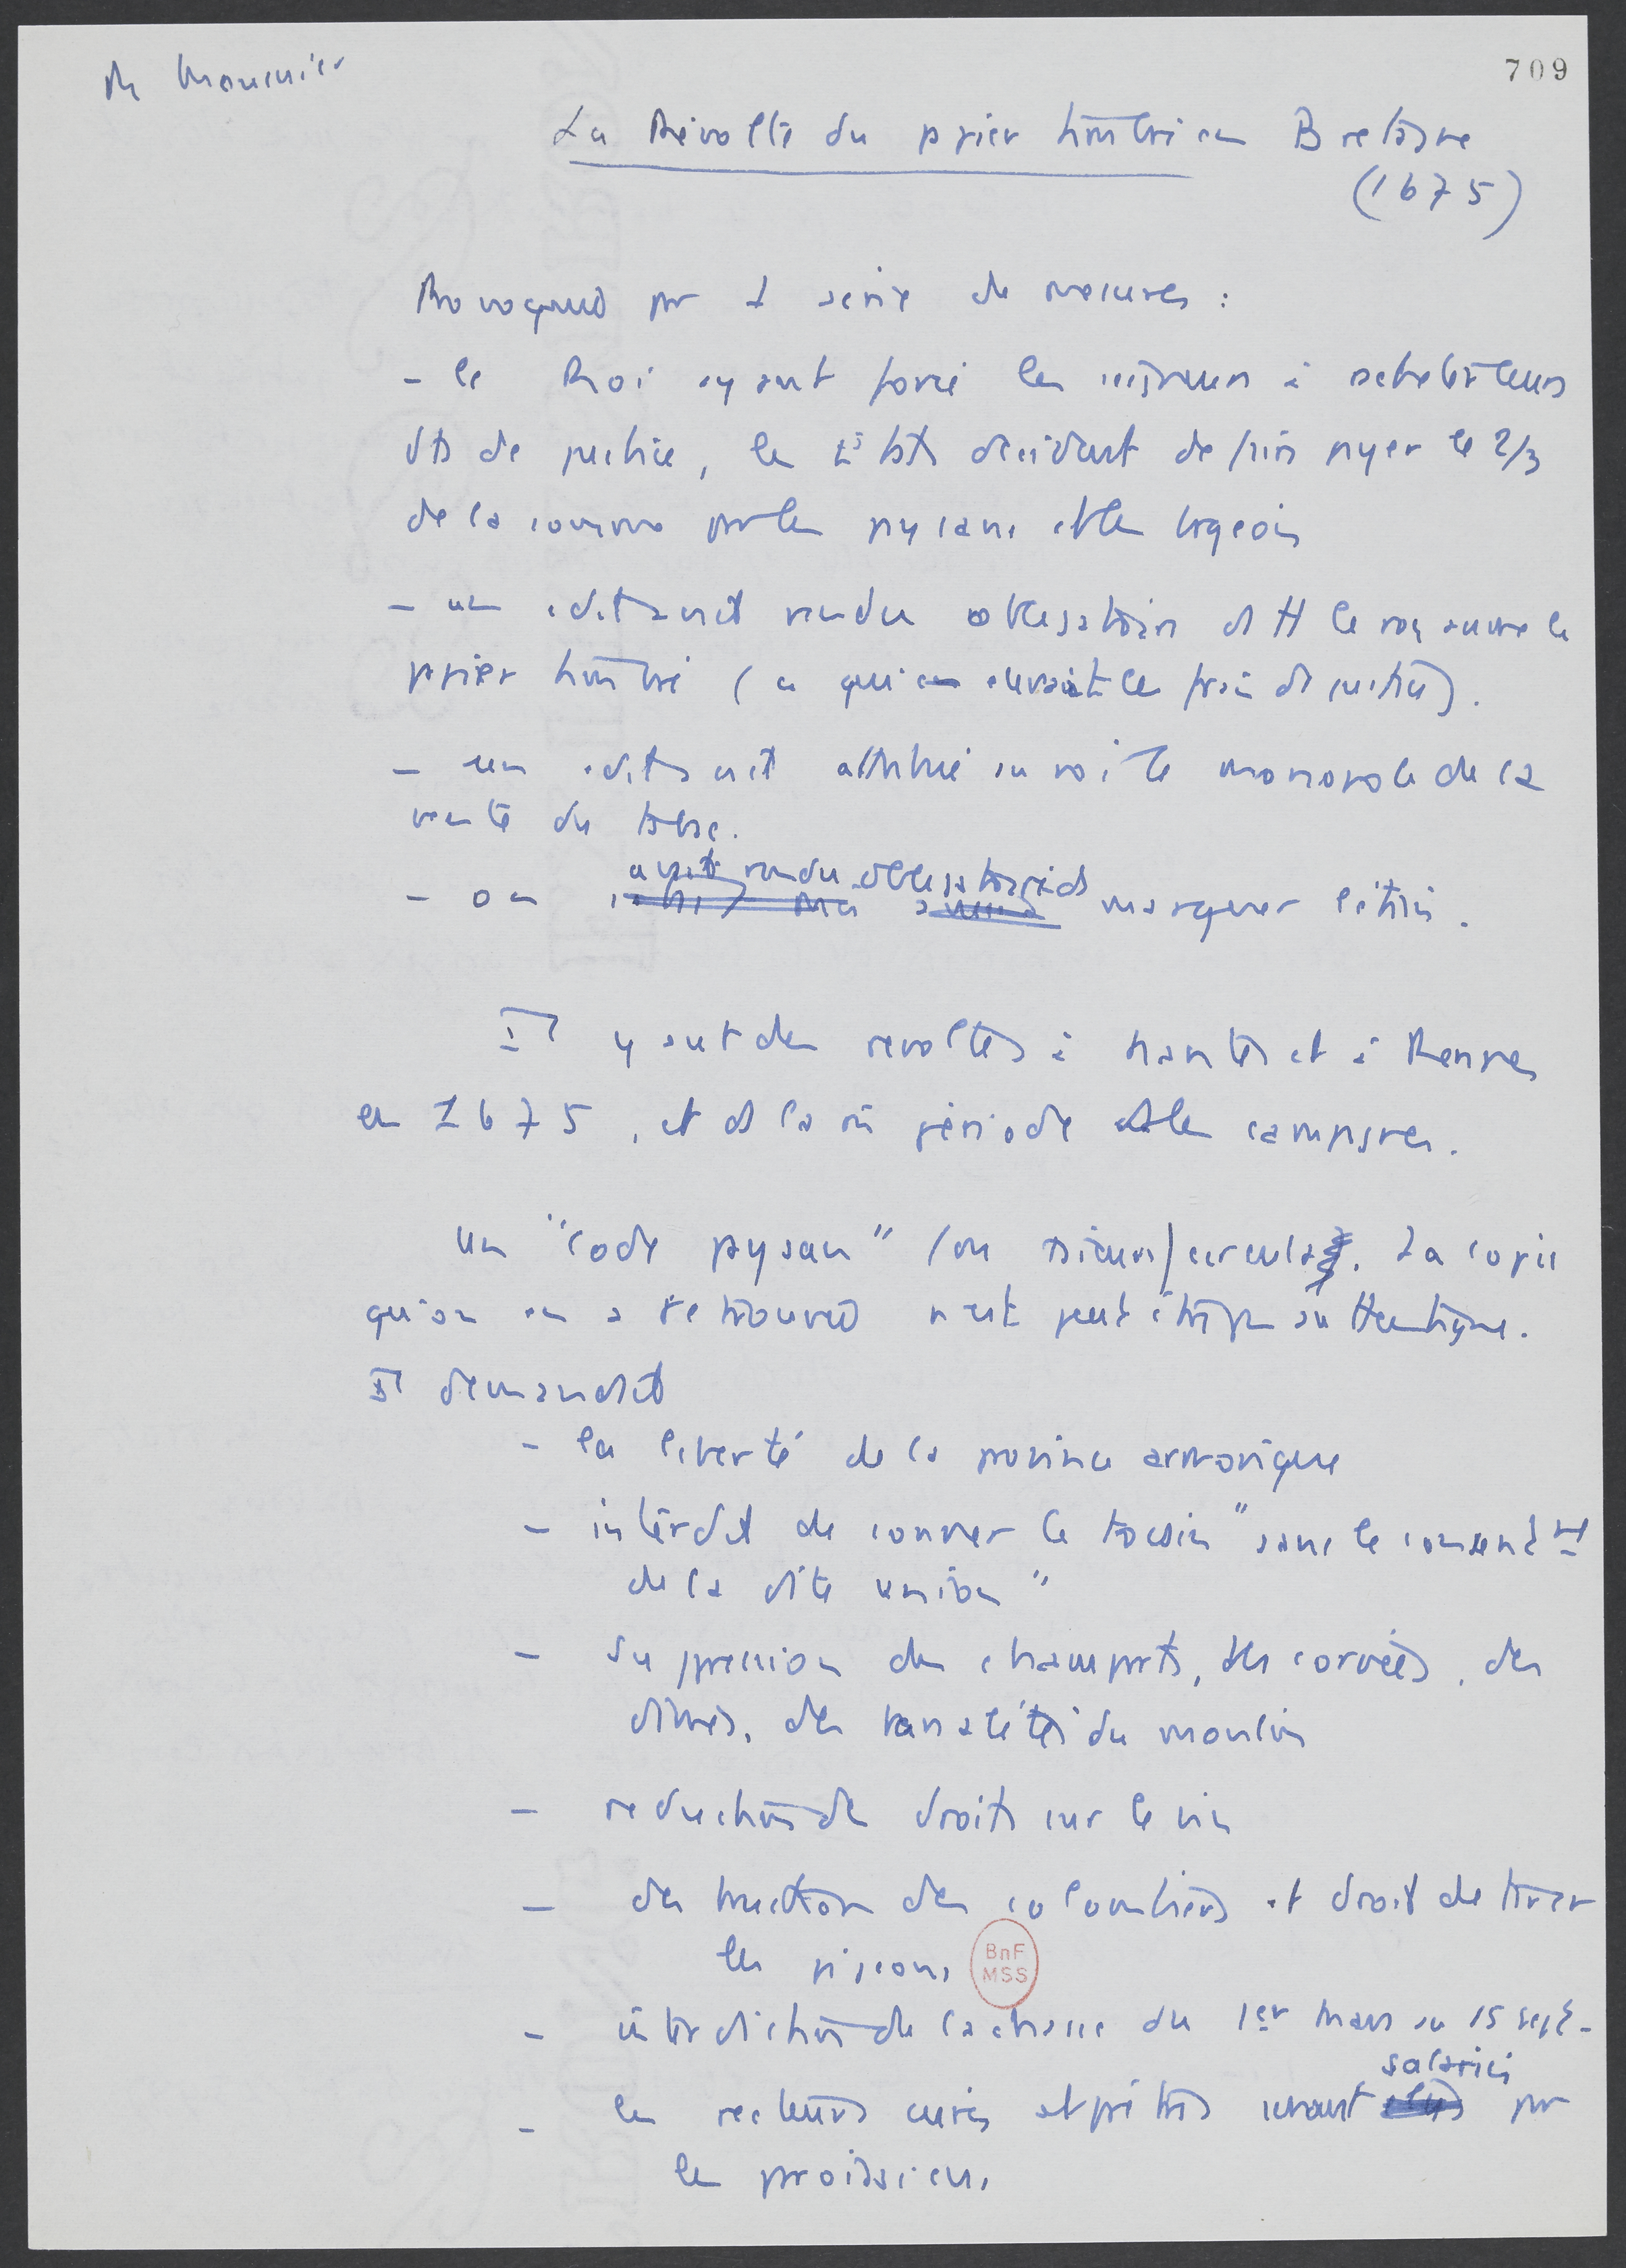 R Mousnier
709
La Révolte du papier timbré en Bretagne
(1675)
Provoquée par 1 série de mesures :
- le Roi ayant forcé les seigneurs à racheter leurs
dts de justice, les Etats décident de faire payer les 2/3
de la somme par les paysans et les bourgeois
- un édit avait rendu obligatoire ds tt le royaume le
papier timbré (ce qui élevait les frais de justice).
- un édit avait attribué au roi le monopole de la
vente du tabac.
- on avait rendu obligatoire de marquer l'étain.
Il y eut des révoltes à Nantes et à Rennes
en 1675, et ds la m̂ période ds les campagnes.
Un "code paysan" (ou circula. La copie
qu'on en a retrouvée n'est peut être pas authentique.
Il demandait
- la liberté de la province armorique
- interdit de sonner le tocsin "sans le consentmt
de la dite union"
- suppression des champarts, des corvées, des
dîmes, des banalités du moulin
- réduction des droits sur le vin
- destruction des colombiers et droit de tirer
les pigeons
BnF
MSS
- interdiction de la chasse du 1er Mars au 15 sept.
- les recteurs curés et prêtres seront salariés par
les paroissiens.